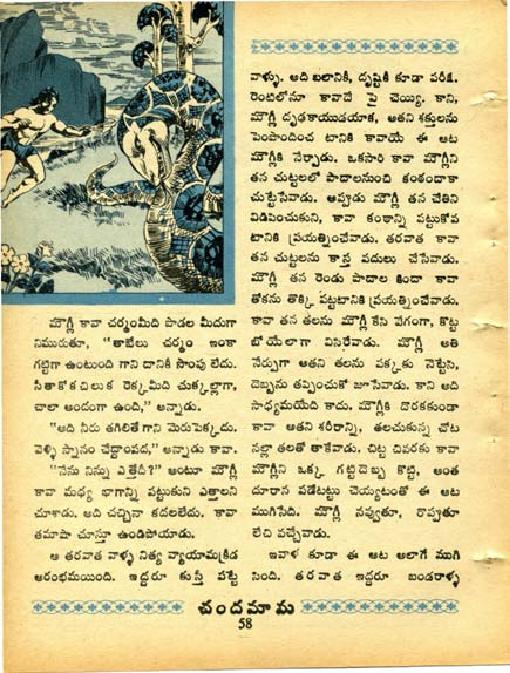 మౌగ్లీ కావా చర్మంమీది పొడల మీదుగా
నిమురుతూ, “తాబేలు చర్మం ఇంకా
గట్టిగా ఉంటుంది గాని దానికీ సొంపు లేదు.
సీతాకోకచిలుక రెక్కమీది చుక్కల్లాగా,
చాలా అందంగా ఉంది,” అన్నాడు.
“అది నీరు తగిలితే గాని మెరుపెక్కదు.
వెళ్ళి స్నానం చేద్దాంపద,” అన్నాడు కావా.
“నేను నిన్ను ఎత్తేదీ?” అంటూ మౌగ్లీ
కావా మధ్య భాగాన్ని పట్టుకుని ఎత్తాలని
చూశాడు. అది చచ్చినా కదలలేదు. కావా
తమాషా చూస్తూ ఉండిపోయాడు.
ఆ తరవాత వాళ్ళ నిత్య వ్యాయామక్రీడ
ఆరంభమయింది. ఇద్దరూ కుస్తీ పట్టే
వాళ్ళు. అది బలానికీ, దృష్టికీ కూడా పరీక్ష.
రెంటిలోనూ కావాదే పై చెయ్యి. కాని,
మౌగ్లీ దృఢకాయుడయాక, అతని శక్తులను
పెంపొందించ టానికి కావాయే ఈ ఆట
మౌగ్లీకి నేర్పాడు. ఒకసారి కావా మౌగ్లీని
తన చుట్టలలో పాదాలనుంచి కంఠందాకా
చుట్టేసేవాడు. అప్పుడు మౌగ్లీ తన చేతిని
విడిపించుకుని, కావా కంఠాన్ని పట్టుకోవ
టానికి ప్రయత్నించేవాడు. తరవాత కావా
తన చుట్టలను కాస్త వదులు చేసేవాడు.
మౌగ్లీ తన రెండు పాదాల కిందా కావా
తోకను తొక్కి పట్టటానికి ప్రయత్నించేవాడు.
కావా తన తలను మౌగ్లీ కేసి వేగంగా, కొట్ట
బోయేలాగా విసిరేవాడు. మౌగ్లీ అతి
నేర్పుగా అతని తలను పక్కకు నెట్టేసి,
దెబ్బను తప్పించుకో జూసేవాడు. కాని అది
సాధ్యమయేది కాదు. మౌగ్లీకి దొరకకుండా
కావా అతని శరీరాన్ని, తలచుకున్న చోట
నల్లా తలతో తాకేవాడు. చిట్ట చివరకు కావా
మౌగ్లీని ఒక్క గట్టిదెబ్బ కొట్టి, అంత
దూరాన పడేటట్టు చెయ్యటంతో ఈ ఆట
ముగిసేది. మౌగ్లీ నవ్వుతూ, రొప్పుతూ
లేచి వచ్చేవాడు.
ఇవాళ కూడా ఈ ఆట అలాగే ముగి
సింది. తరవాత ఇద్దరూ బండరాళ్ళ
చందమామ
58